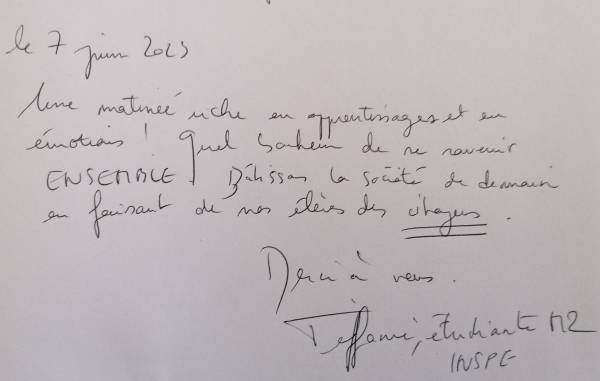 le 7 juin 2023
Une matinée riche en apprentissages et en
émotions ! Quel bonheur de se
ENSEMBLE ! Bâtissons la société de demain
en faisant de nos élèves des citoyens.
Merci à vous.
étudiante M2
INSPE